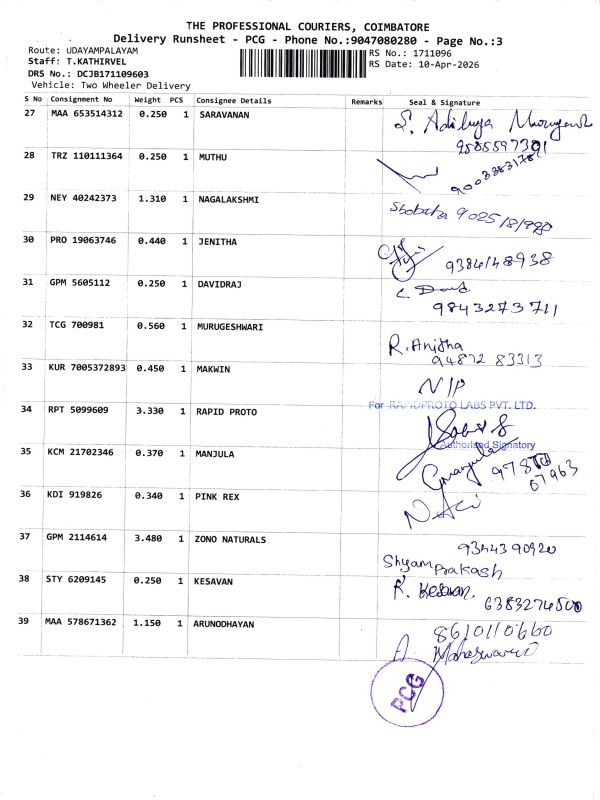 THE PROFESSIONAL COURIERS, COIMBATORE
Delivery Runsheet - PCG - Phone No.:9047080280 - Page No.:3
Route: UDAYAMPALAYAM
RS No.: 1711096
Staff: T.KATHIRVEL
RS Date: 10-Apr-2026
DRS No.: DCJB171109603
Vehicle: Two Wheeler Delivery
S No Consignment No Weight PCS Consignee Details Remarks Seal & Signature
27 MAA 653514312 0.250 1 SARAVANAN
S. Adithya
28 TRZ 110111364 0.250 1 MUTHU
29 NEY 40242373 1.310 1 NAGALAKSHMI
30 PRO 19063746 0.440 1 JENITHA
9384148938
31 GPM 5605112 0.250 1 DAVIDRAJ
9843273711
32 TCG 700981 0.560 1 MURUGESHWARI
R. Anitha
94872 83313
33 KUR 7005372893 0.450 1 MAKWIN
N/P
For RAPIDPROTO LABS PVT. LTD.
34 RPT 5099609 3.330 1 RAPID PROTO
Authorised Signatory
35 KCM 21702346 0.370 1 MANJULA
36 KDI 919826 0.340 1 PINK REX
37 GPM 2114614 3.480 1 ZONO NATURALS
9344390920
Shyamprakash
38 STY 6209145 0.250 1 KESAVAN
R. Kesavan.
6383274500
39 MAA 578671362 1.150 1 ARUNODHAYAN
8610110660
A. Maheswari
PCG